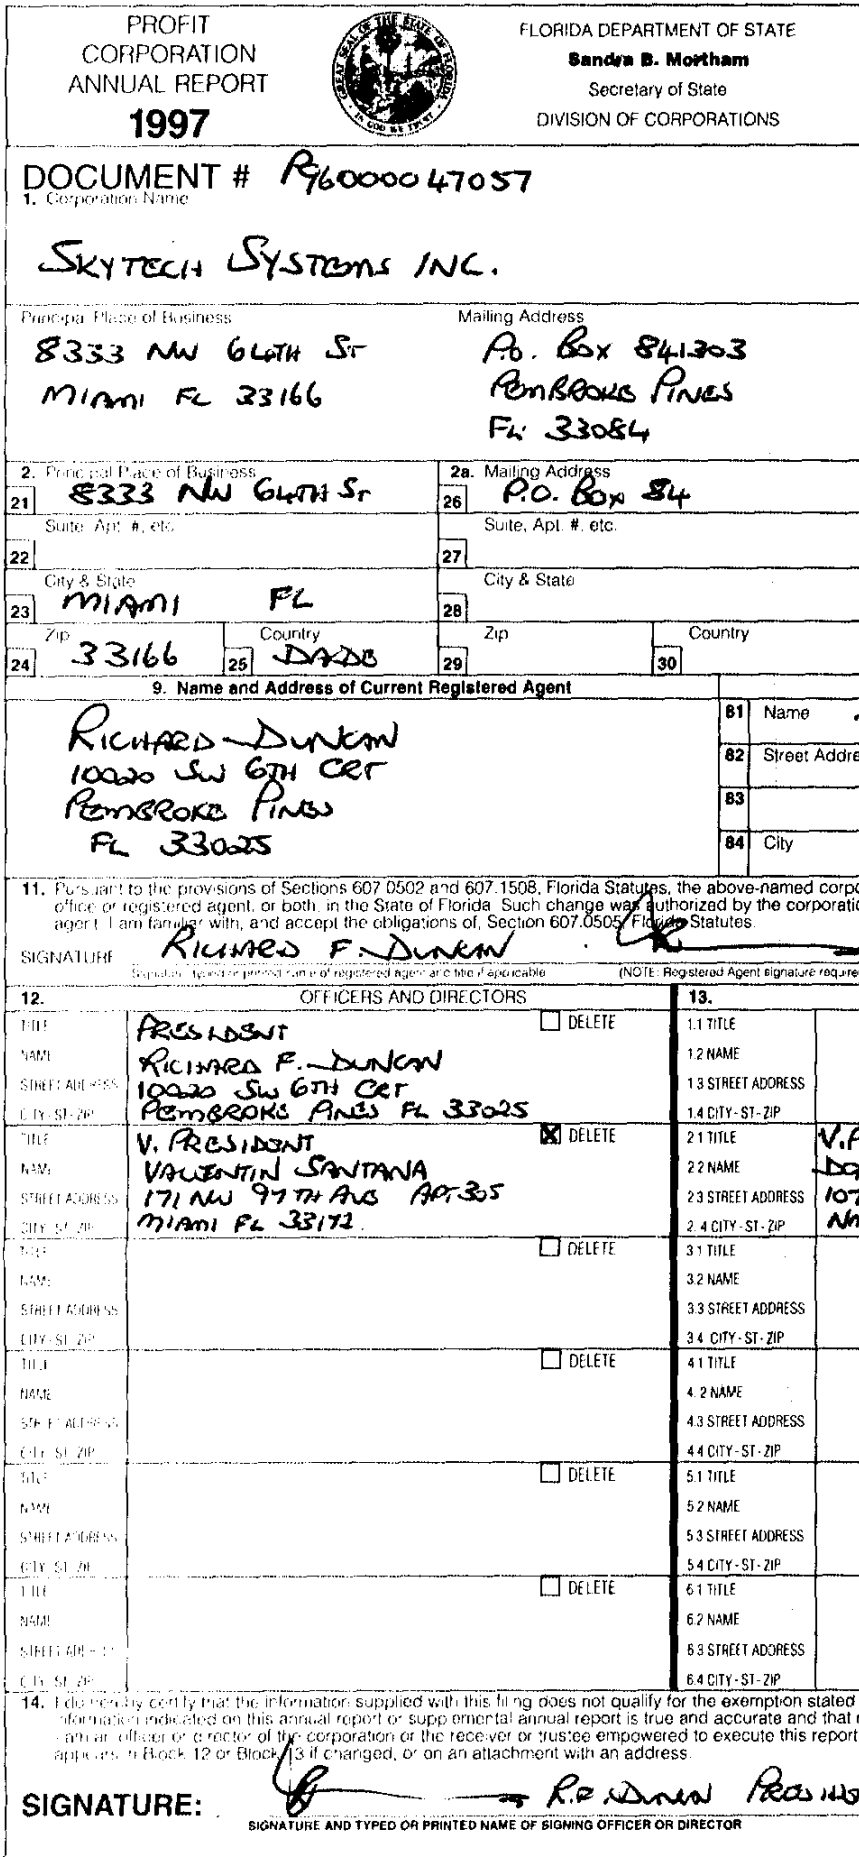 PROFIT
CORPORATION
ANNUAL REPORT
1997
GREAT SEAL OF THE STATE OF FLORIDA
IN GOD WE TRUST
FLORIDA DEPARTMENT OF STATE
Sandra B. Mortham
Secretary of State
DIVISION OF CORPORATIONS
DOCUMENT # P96000047057
1. Corporation Name
SKYTECH SYSTEMS INC.
Principal Place of Business
8333 NW 64TH ST
MIAMI FL 33166
Mailing Address
P.O. BOX 841303
PEMBROKE PINES
FL 33084
2. Principal Place of Business
21 8333 NW 64TH ST
2a. Mailing Address
26 P.O. BOX 84
Suite, Apt. #, etc.
22
Suite, Apt. #, etc.
27
City & State
23 MIAMI FL
City & State
28
Zip
24 33166
Country
25 DADE
Zip
29
Country
30
9. Name and Address of Current Registered Agent
RICHARD DUNCAN
10020 SW 6TH CRT
PEMBROKE PINES
FL 33025
81 Name
82 Street Addre
83
84 City
11. Pursuant to the provisions of Sections 607.0502 and 607.1508, Florida Statutes, the above-named corpo
office or registered agent, or both, in the State of Florida. Such change was authorized by the corporatio
agent. I am familiar with, and accept the obligations of, Section 607.0505, Florida Statutes.
SIGNATURE RICHARD F. DUNCAN
Signature, typed or printed name of registered agent and title if applicable
(NOTE: Registered Agent signature require
12. OFFICERS AND DIRECTORS
13.
TITLE PRESIDENT DELETE
NAME RICHARD F. DUNCAN
STREET ADDRESS 10020 SW 6TH CRT
CITY-ST-ZIP PEMBROKE PINES FL 33025
1.1 TITLE
1.2 NAME
1.3 STREET ADDRESS
1.4 CITY-ST-ZIP
TITLE V. PRESIDENT X DELETE
NAME VALENTIN SANTANA
STREET ADDRESS 171 NW 97TH AVE APT 305
CITY-ST-ZIP MIAMI FL 33172
2.1 TITLE V.P
2.2 NAME
2.3 STREET ADDRESS 107
2.4 CITY-ST-ZIP
TITLE DELETE
NAME
STREET ADDRESS
CITY-ST-ZIP
3.1 TITLE
3.2 NAME
3.3 STREET ADDRESS
3.4 CITY-ST-ZIP
TITLE DELETE
NAME
STREET ADDRESS
CITY-ST-ZIP
4.1 TITLE
4.2 NAME
4.3 STREET ADDRESS
4.4 CITY-ST-ZIP
TITLE DELETE
NAME
STREET ADDRESS
CITY-ST-ZIP
5.1 TITLE
5.2 NAME
5.3 STREET ADDRESS
5.4 CITY-ST-ZIP
TITLE DELETE
NAME
STREET ADDRESS
CITY-ST-ZIP
6.1 TITLE
6.2 NAME
6.3 STREET ADDRESS
6.4 CITY-ST-ZIP
14. I do hereby certify that the information supplied with this filing does not qualify for the exemption stated
information indicated on this annual report or supplemental annual report is true and accurate and that
I am an officer or director of the corporation or the receiver or trustee empowered to execute this report
appears in Block 12 or Block 13 if changed, or on an attachment with an address.
SIGNATURE: R.F. DUNCAN PRESIDE
SIGNATURE AND TYPED OR PRINTED NAME OF SIGNING OFFICER OR DIRECTOR